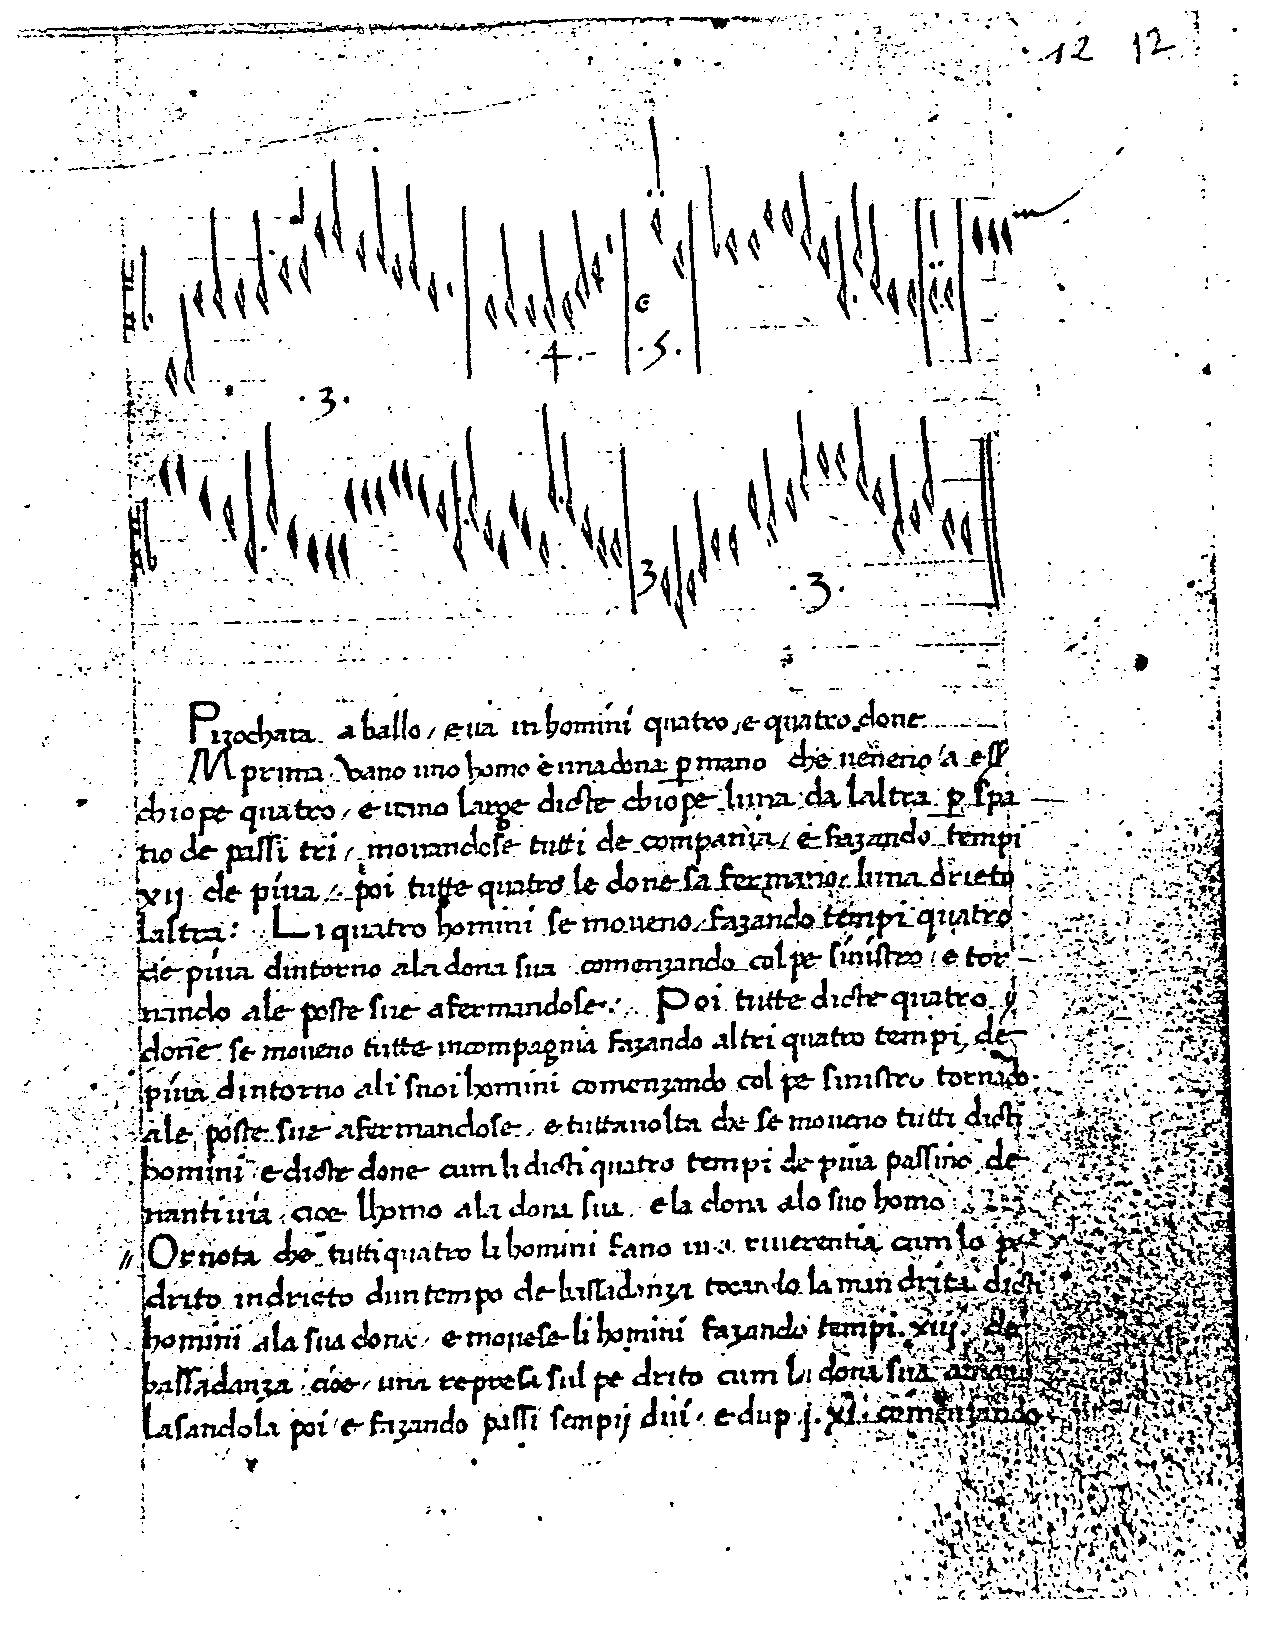 12 12
4 . 5 .
. 3 .
3 . 3 .
Pizochara a ballo / e va in homini quatro / e quatro done
Mprima. vano uno homo e una dona p mano che veñeno a esse
chiope quatro / e vano large dicte chiope luna da laltra p spa
tio de passi tri / movandose tutti de compania / e fazando tempi
xij de piva / poi tutte quatro le done sa fermano / luna drieto
laltra: Li quatro homini se moveno / fazando tempi quatro
de piva dintorno ala dona sua comenzando col pe sinistro / e tor
nando ale poste sue afermandose: Poi tutte dicte quatro
done se moveno tutte incompagnia fazando altri quatro tempi de
piva dintorno ali suoi homini comenzando col pe sinistro tornado
ale poste sue afermandose / e tuttavolta che se moveno tutti dicti
homini e dicte done cum li dicti quatro tempi de piva passino de
nanti via. cioe lhomo ala dona sua e la dona alo suo homo
// Or nota che tutti quatro li homini fano una riverentia cum lo pe
drito indrieto dun tempo de bassadanza tocando la man drita dicti
homini ala sua dona / e movese li homini fazando tempi. xiij. de
bassadanza. cioe / una represa sul pe drito cum la dona sua
lasandola poi / e fazando passi sempij dui / e dup j. xi. comenzando